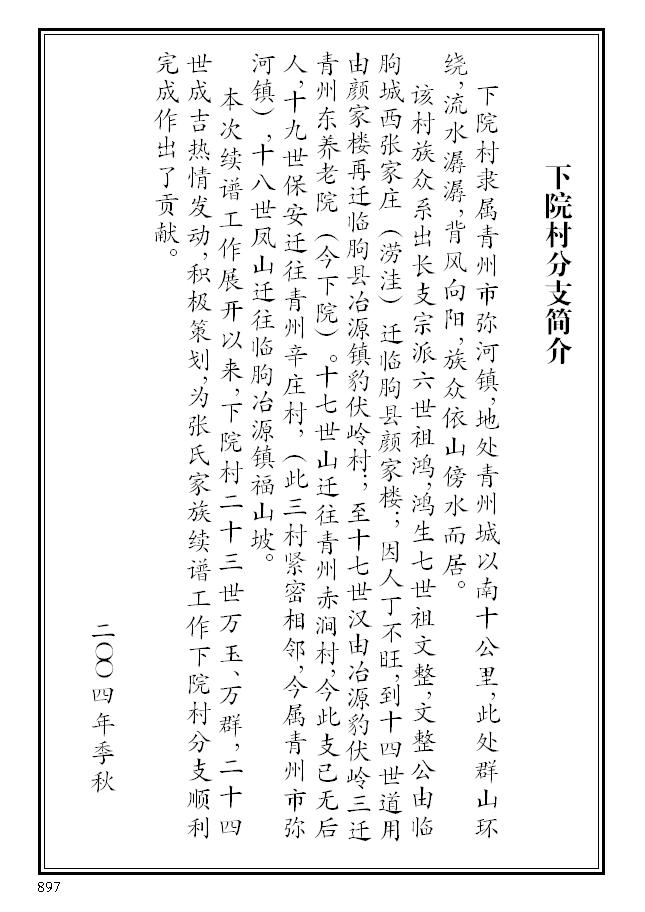 下院村分支简介
下院村隶属青州市弥河镇,地处青州城以南十公里,此处群山环
绕,流水潺潺,背风向阳,族众依山傍水而居。
该村族众系出长支宗派六世祖鸿,鸿生七世祖文整,文整公由临
朐城西张家庄(涝洼)迁临朐县颜家楼;因人丁不旺,到十四世道用
由颜家楼再迁临朐县冶源镇豹伏岭村;至十七世汉由冶源豹伏岭三迁
青州东养老院(今下院)。十七世山迁往青州赤涧村,今此支已无后
人,十九世保安迁往青州辛庄村,(此三村紧密相邻,今属青州市弥
河镇),十八世凤山迁往临朐冶源镇福山坡。
本次续谱工作展开以来,下院村二十三世万玉、万群,二十四
世成吉热情发动,积极策划,为张氏家族续谱工作下院村分支顺利
完成作出了贡献。
二〇〇四年季秋
897